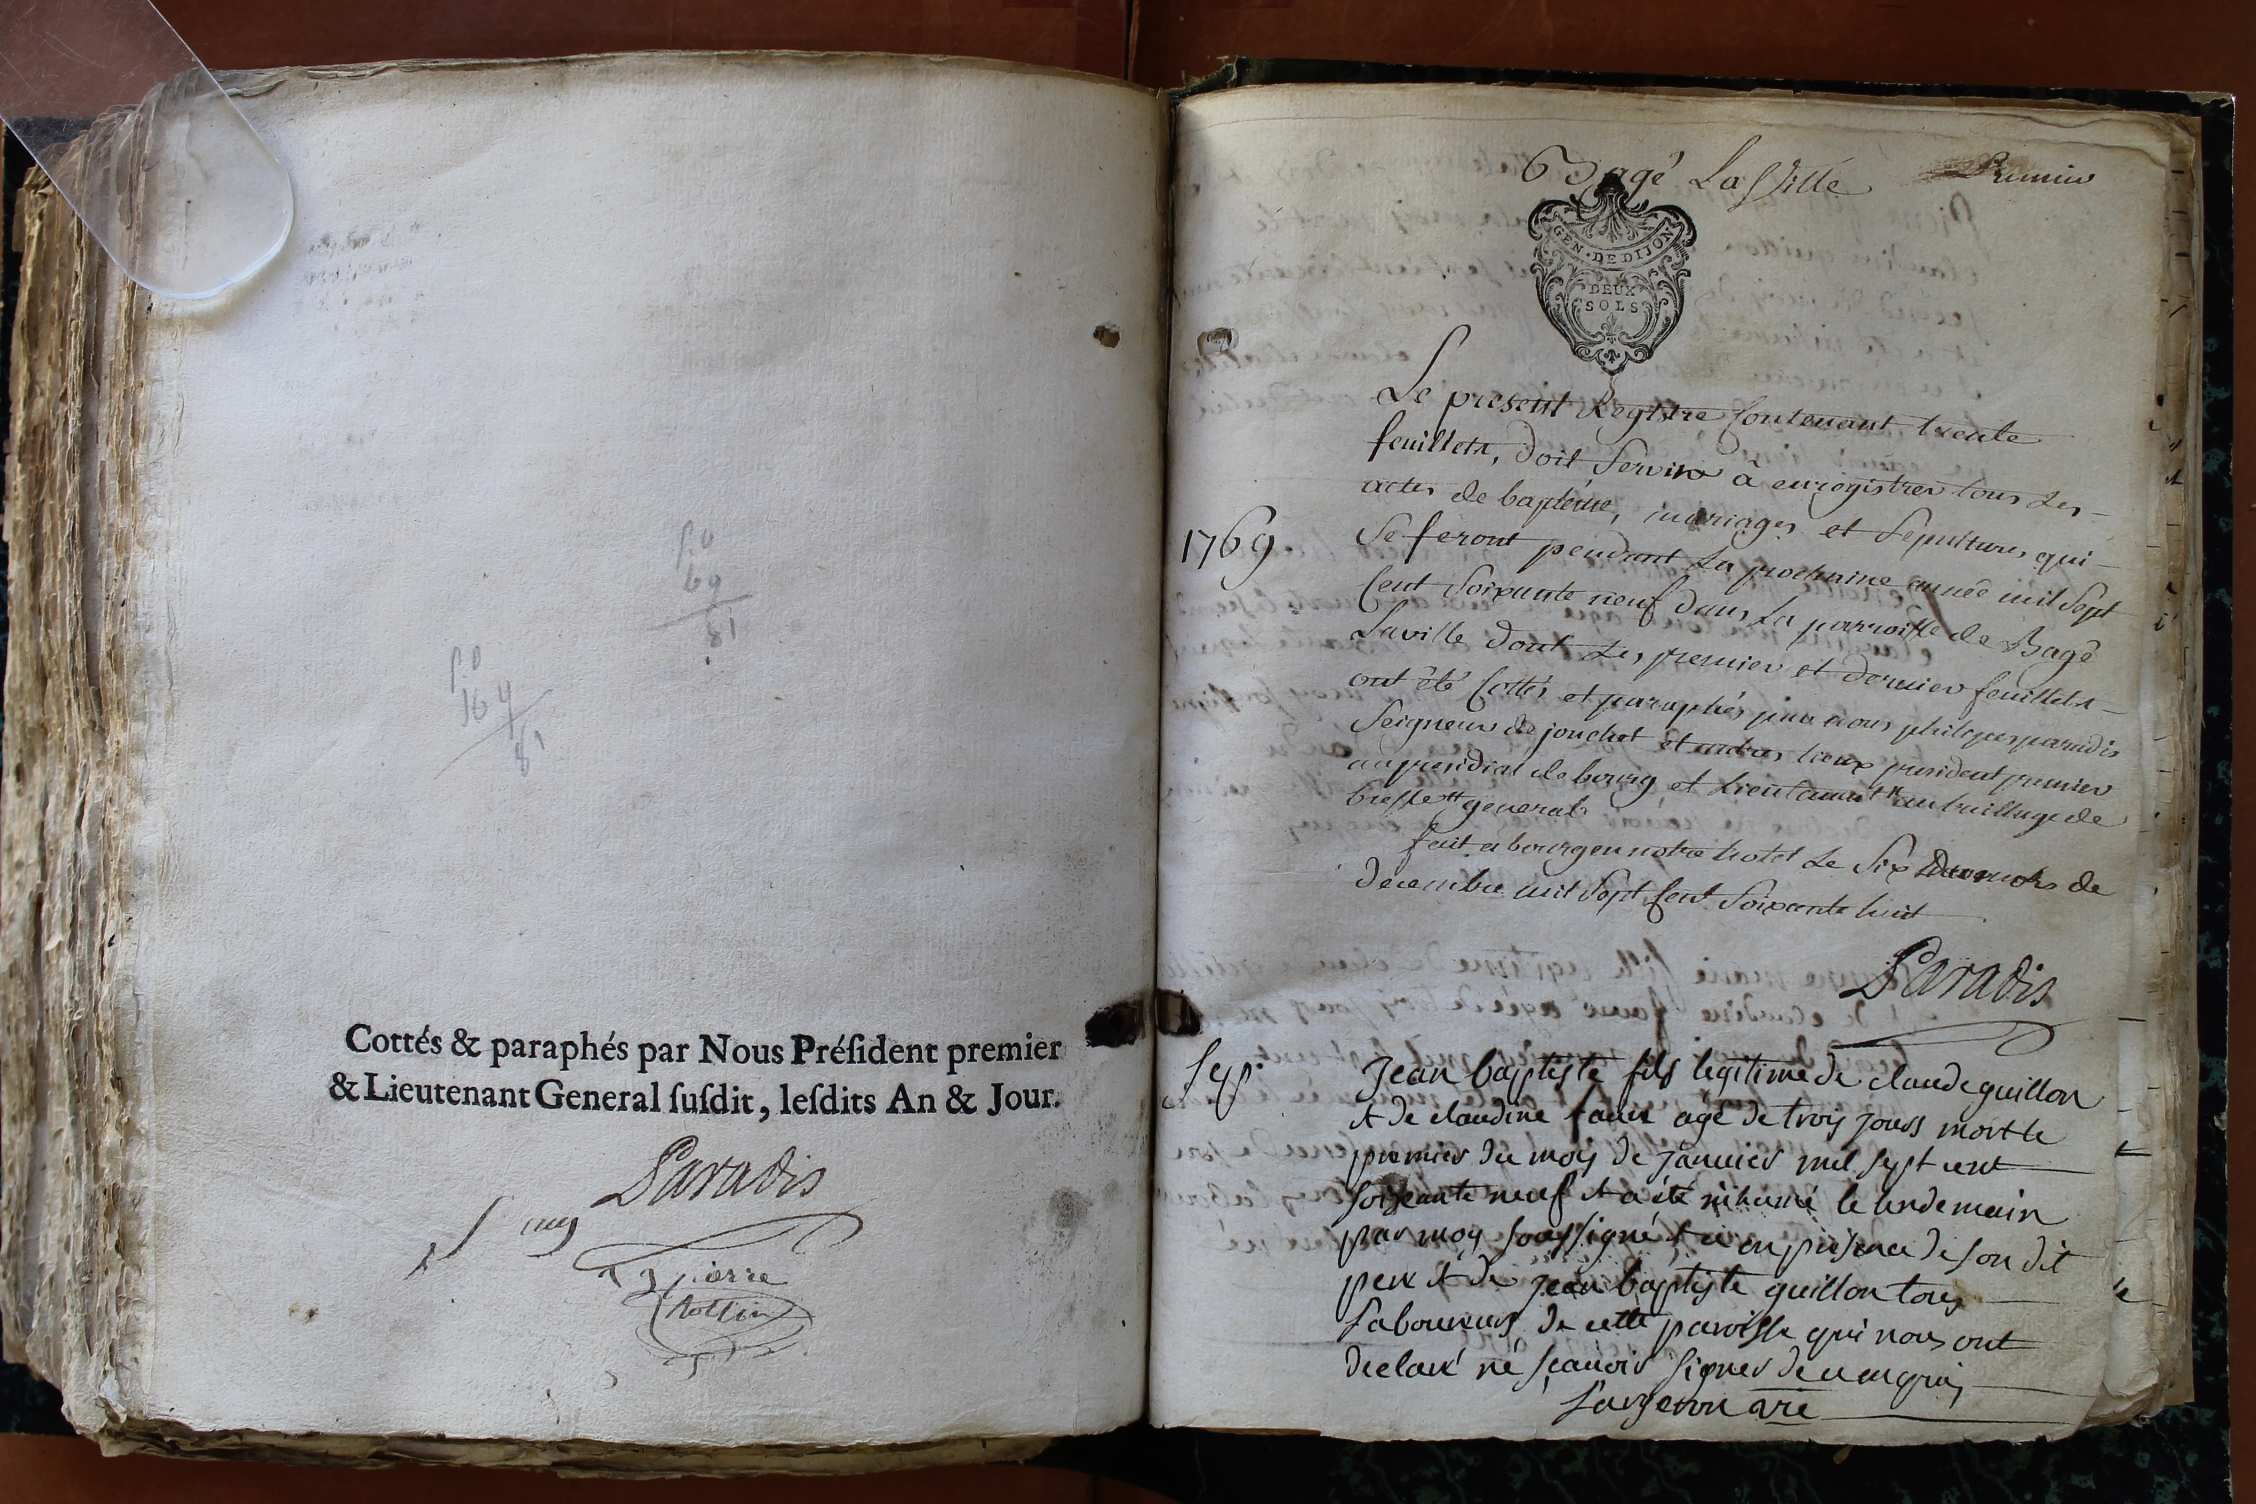 Cottés & paraphés par Nous Préſident premier
& Lieutenant General ſuſdit, leſdits An & Jour.
Paradis
pierre
Rollin
Bagé La Ville
Premier
GEN. DE DIJON
DEUX
SOLS
Le present Registre Contenant trente
feuillets, doit Servir à enregistrer tous Les
actes de baptême, mariages et Sepultures qui
1769
Se feront pendant La prochaine année mil Sept
Cent Soixante neuf dans La parroisse de Bagé
Laville dont Les premier et dernier feuillets
ont été Cottés et paraphés par nous philipes paradis
Seigneur de jouchet et autres lieux president premier
au presidial de bourg et Lieutenant au bailliage de
bresse general
fait a bourg en notre hotel Le Six du mois de
decembre mil Sept Cent Soixante huit
Paradis
Sep.
Jean baptiste fils legitime de claude guillon
et de claudine faure agé de trois jours mort le
premier du mois de janvier mil sept cent
soixante neuf et a été inhumé le lendemain
par moy soussigné et ce en presence de son dit
pere et de jean baptiste guillon tous
laboureurs de cette paroisse qui nous ont
declaré né sçauoir signer de ce enquis